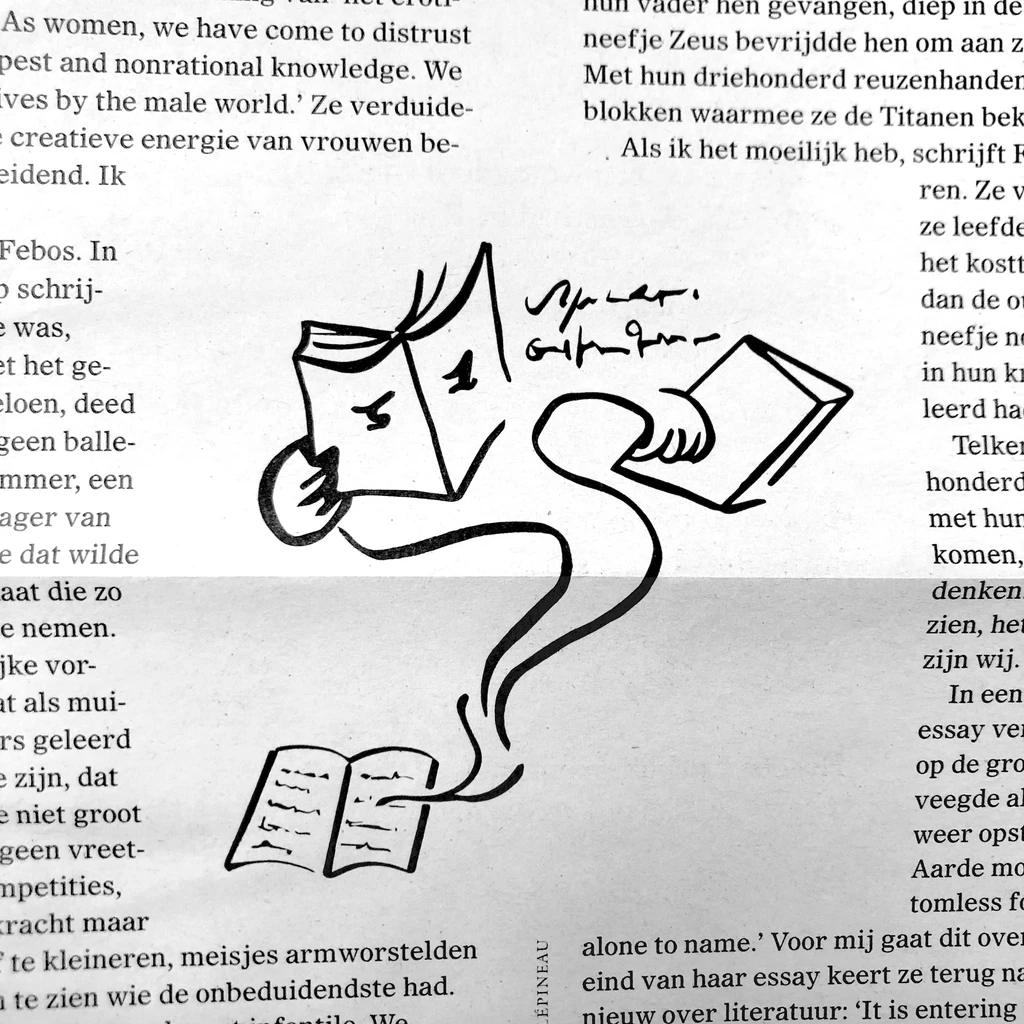 As women, we have come to distrust
pest and nonrational knowledge. We
ives by the male world.’ Ze verduide-
creatieve energie van vrouwen be-
eidend. Ik
Febos. In
schrij-
e was,
et het ge-
eloen, deed
geen balle-
mmer, een
ager van
e dat wilde
aat die zo
te nemen.
ijke vor-
at als mui-
rs geleerd
e zijn, dat
e niet groot
geen vreet-
mpetities,
kracht maar
te kleineren, meisjes armworstelden
te zien wie de onbeduidendste had.
We
ÉPINEAU
hun vader hen gevangen, diep in de
neefje Zeus bevrijdde hen om aan z
Met hun driehonderd reuzenhanden
blokken waarmee ze de Titanen bek
Als ik het moeilijk heb, schrijft F
ren. Ze v
ze leefde
het kostt
dan de o
neefje ne
in hun k
leerd ha
Telke
honderd
met hun
komen,
denken.
zien, het
zijn wij.
In een
essay ve
op de gro
veegde al
weer opst
Aarde mo
tomless fo
alone to name.’ Voor mij gaat dit over
eind van haar essay keert ze terug na
nieuw over literatuur: ‘It is entering